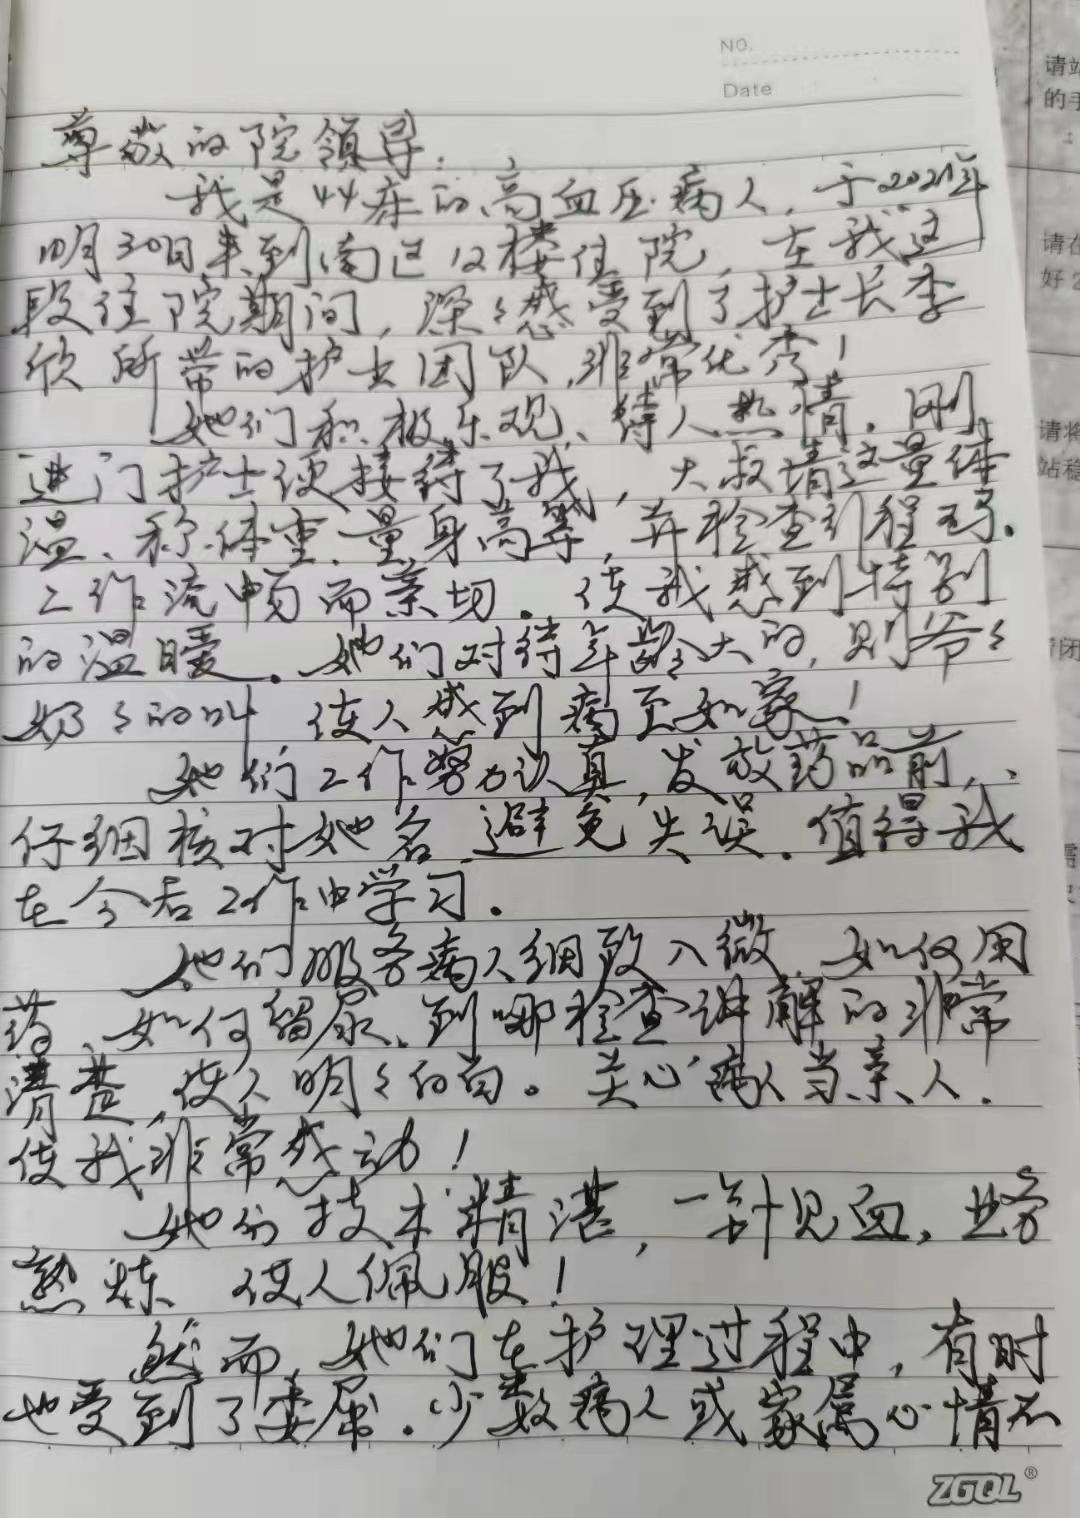 NO.
Date
尊敬的院领导：
我是44床的高血压病人，于2021年
10月30日来到南区12楼住院，在我这
段住院期间，深々感受到了护士长李
欣所带的护士团队，非常优秀！
她们积极乐观、待人热情。刚
进门护士便接待了我，大叔请这量体
温、称体重、量身高等，并检查行程码。
工作流畅而亲切。使我感到特别
的温暖。她们对待年龄大的，则爷々
奶々的叫 使人感到病至如家！
她们工作努力认真，发放药品前，
仔细核对姓名，避免失误。值得我
在今后工作中学习。
她们服务病人细致入微，如何用
药、如何留尿、到哪检查讲解的非常
清楚，使人明々白白。关心病人当亲人。
使我非常感动！
她们技术精湛，一针见血，业务
熟炼 使人佩服！
然而，她们在护理过程中，有时
也受到了委屈。少数病人或家属心情不
ZGQL®
请站
的手
请在
好
请将
站稳
闭
需